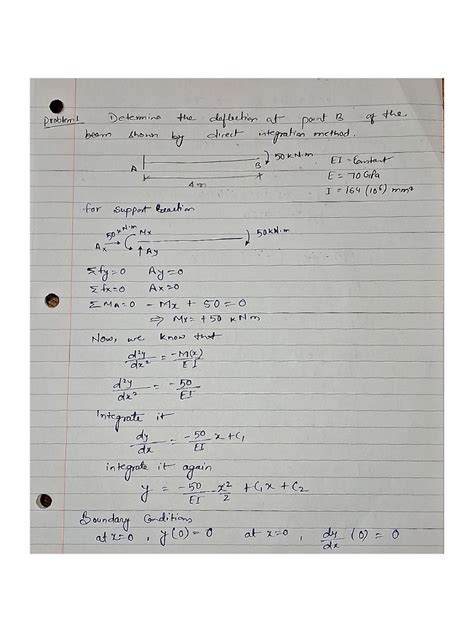 Problem1 Determine the deflection at point B of the
beam shown by direct integration method.
A B 50 kN.m
4 m
EI = Constant
E = 70 GPa
I = 164 (10⁶) mm⁴
for support Reaction
50 kN.m Mx 50 kN.m
Ax Ay
Σfy=0 Ay=0
Σfx=0 Ax=0
ΣMA=0 - Mx + 50 = 0
⇒ Mx = +50 kNm
Now, we know that
d²y/dx² = -M(x)/EI
d²y/dx² = -50/EI
Integrate it
dy/dx = -50/EI x + C₁
integrate it again
y = -50/EI x²/2 + C₁x + C₂
Boundary Conditions
at x=0 , y(0) = 0 at x=0 , dy/dx (0) = 0